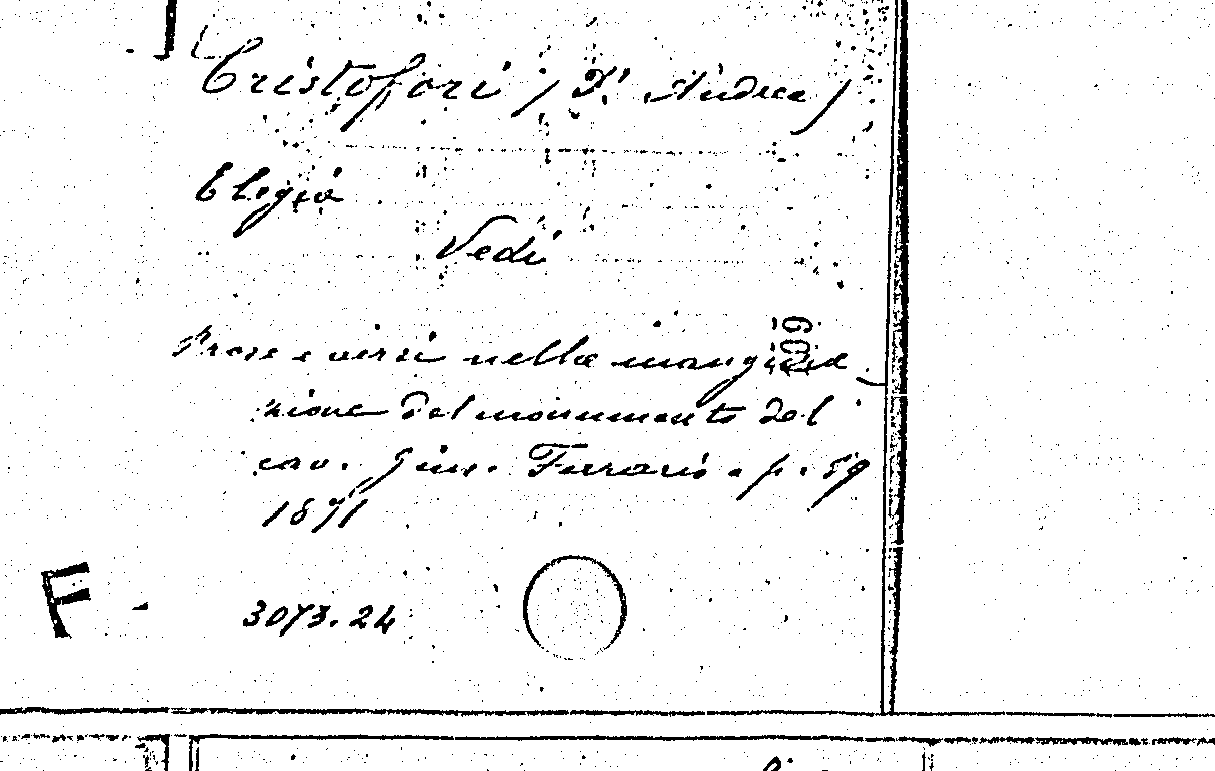 Cristofori (D.r Andrea)
Elegia
Vedi
Prose e versi nella inaugura
zione del monumento del
cav. Gius. Ferrario. p. 59
1871
609
F
3073.24